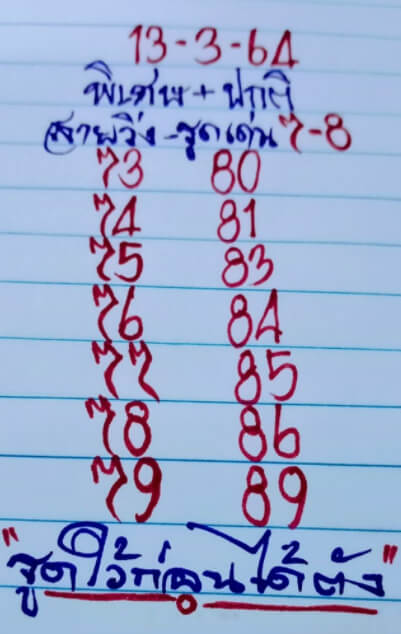 13-3-64
พิเศษ + ปกติ
สายวิ่ง - รูดเด่น 7-8
73 80
74 81
75 83
76 84
77 85
78 86
79 89
"รูดไว้ก่อนได้ตัง"